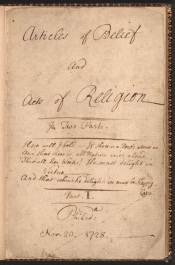 Articles of Belief
and
Acts of Religion
In Two Parts.
Here will I hold — If there is a Pow'r above us
And that there is all Nature cries aloud
Thro' all her Works, He must delight in
Virtue
And that which he delights in must be Happy
Cato
Part I.
Philad.ª
Nov. 20. 1728.